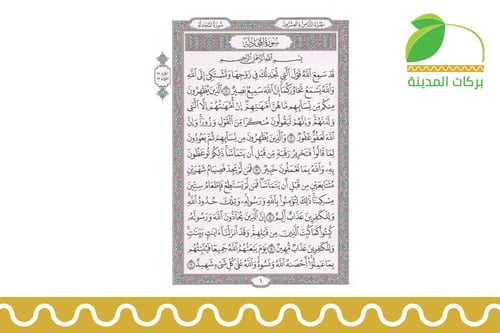 سورة المجادلة
الجزء الثامن والعشرون
سُورَةُ المُجَادلة
بِسْمِ اللَّهِ الرَّحْمَٰنِ الرَّحِيمِ
قَدْ سَمِعَ اللَّهُ قَوْلَ الَّتِي تُجَادِلُكَ فِي زَوْجِهَا وَتَشْتَكِي إِلَى اللَّهِ
وَاللَّهُ يَسْمَعُ تَحَاوُرَكُمَا إِنَّ اللَّهَ سَمِيعٌ بَصِيرٌ ۝ الَّذِينَ يُظَاهِرُونَ
مِنكُم مِّن نِّسَائِهِم مَّا هُنَّ أُمَّهَاتِهِمْ إِنْ أُمَّهَاتُهُمْ إِلَّا الَّتِي
وَلَدْنَهُمْ وَإِنَّهُمْ لَيَقُولُونَ مُنكَرًا مِّنَ الْقَوْلِ وَزُورًا وَإِنَّ
اللَّهَ لَعَفُوٌّ غَفُورٌ ۝ وَالَّذِينَ يُظَاهِرُونَ مِن نِّسَائِهِمْ ثُمَّ يَعُودُونَ
لِمَا قَالُوا فَتَحْرِيرُ رَقَبَةٍ مِّن قَبْلِ أَن يَتَمَاسَّا ذَٰلِكُمْ تُوعَظُونَ
بِهِ وَاللَّهُ بِمَا تَعْمَلُونَ خَبِيرٌ ۝ فَمَن لَّمْ يَجِدْ فَصِيَامُ شَهْرَيْنِ
مُتَتَابِعَيْنِ مِن قَبْلِ أَن يَتَمَاسَّا فَمَن لَّمْ يَسْتَطِعْ فَإِطْعَامُ سِتِّينَ
مِسْكِينًا ذَٰلِكَ لِتُؤْمِنُوا بِاللَّهِ وَرَسُولِهِ وَتِلْكَ حُدُودُ اللَّهِ
وَلِلْكَافِرِينَ عَذَابٌ أَلِيمٌ ۝ إِنَّ الَّذِينَ يُحَادُّونَ اللَّهَ وَرَسُولَهُ
كُبِتُوا كَمَا كُبِتَ الَّذِينَ مِن قَبْلِهِمْ وَقَدْ أَنزَلْنَا آيَاتٍ بَيِّنَاتٍ
وَلِلْكَافِرِينَ عَذَابٌ مُّهِينٌ ۝ يَوْمَ يَبْعَثُهُمُ اللَّهُ جَمِيعًا فَيُنَبِّئُهُم
بِمَا عَمِلُوا أَحْصَاهُ اللَّهُ وَنَسُوهُ وَاللَّهُ عَلَىٰ كُلِّ شَيْءٍ شَهِيدٌ ۝
١
بركات المدينة